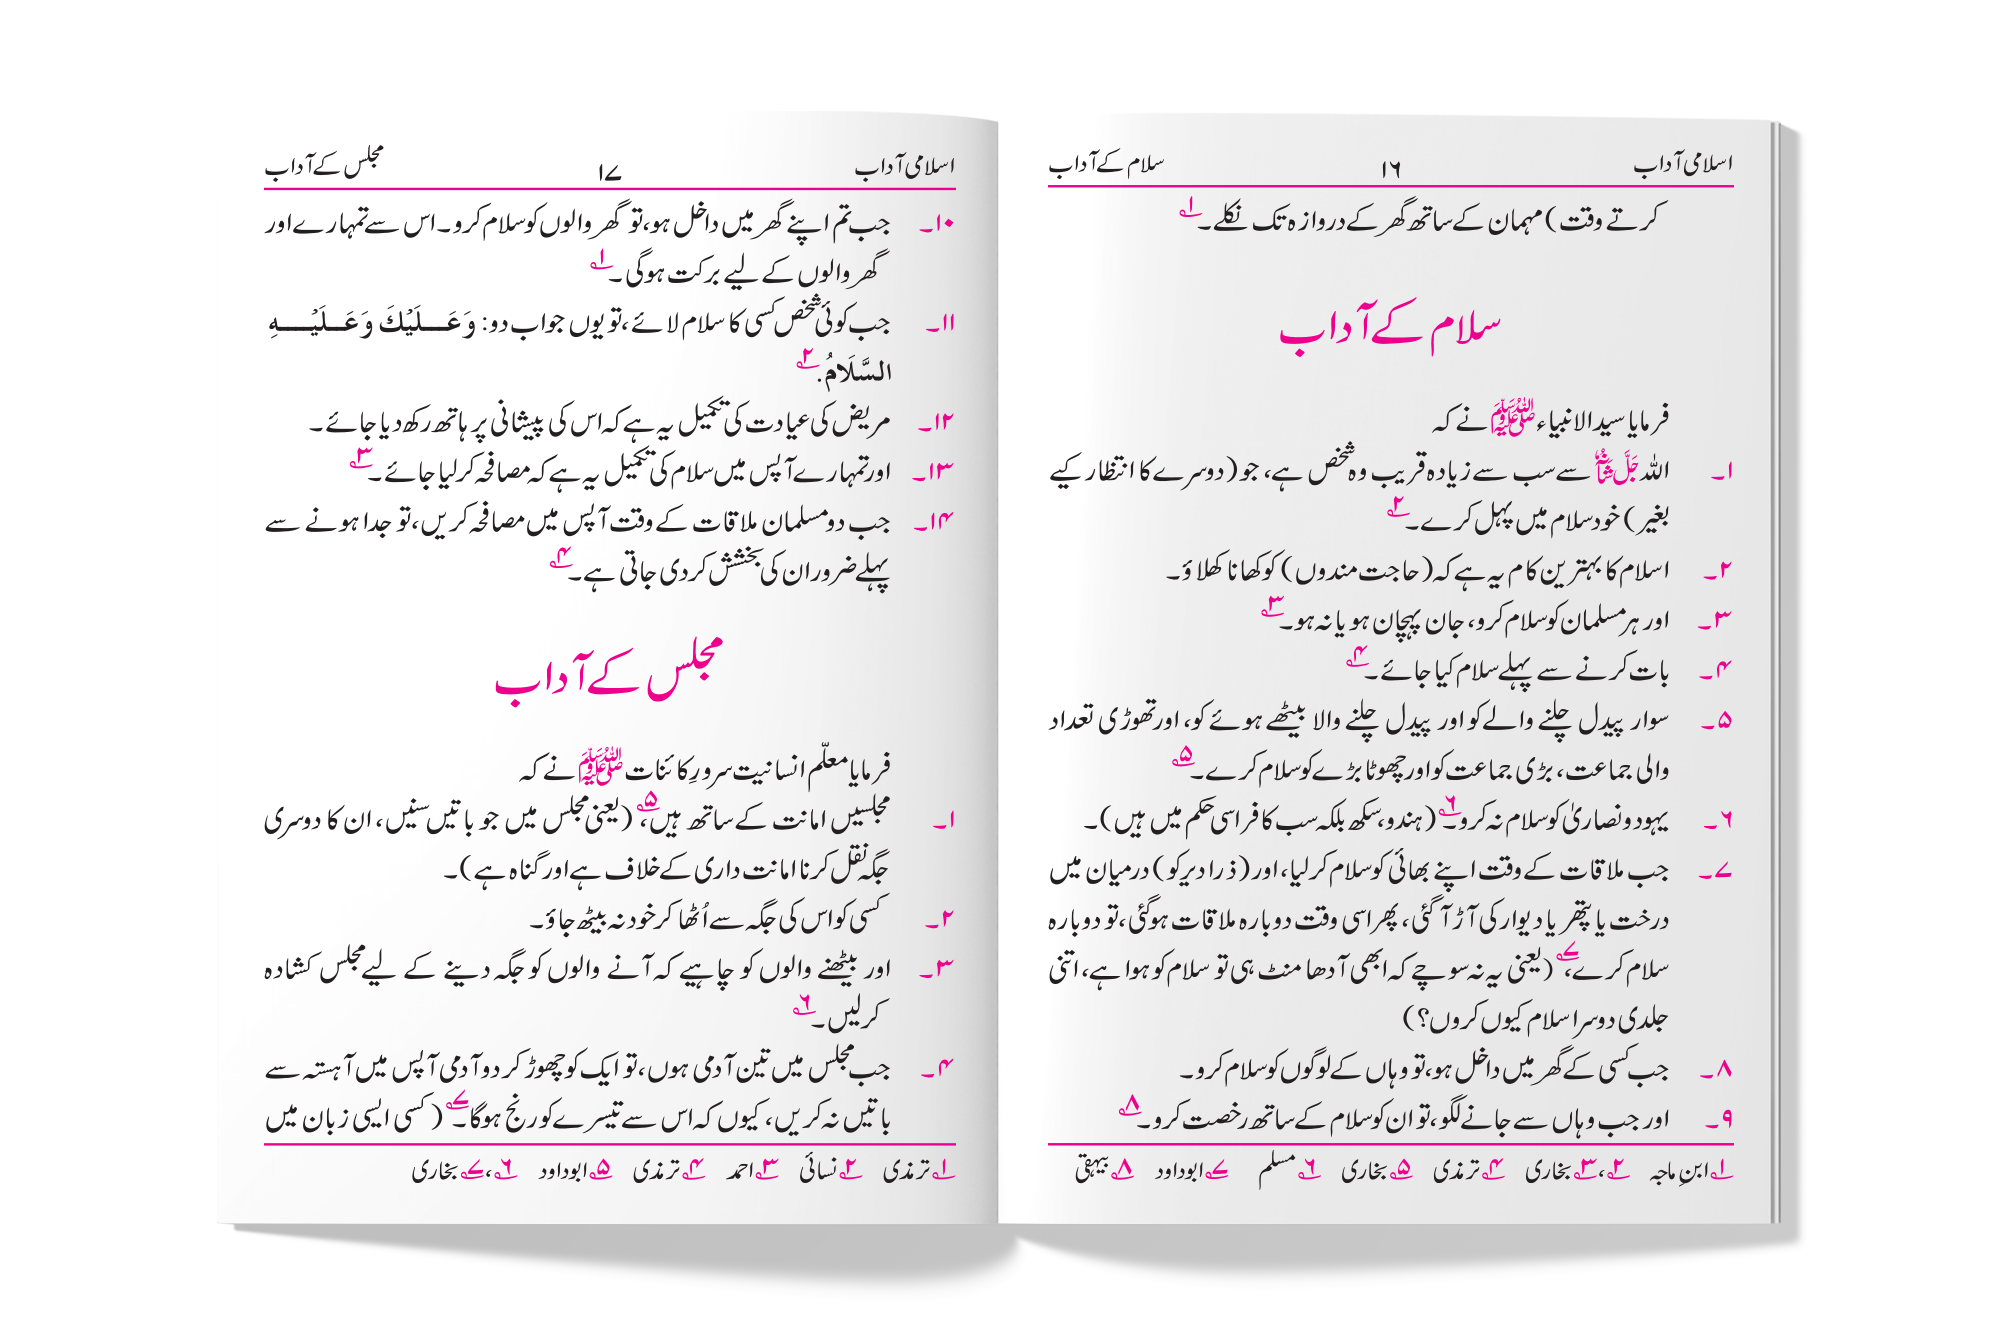 اسلامی آداب ۱۶ سلام کے آداب
کرتے وقت) مہمان کے ساتھ گھر کے دروازہ تک نکلے۔ ۱
سلام کے آداب
فرمایا سید الانبیاء ﷺ نے کہ
۱۔ اللہ جَلَّ شَانُہٗ سے سب سے زیادہ قریب وہ شخص ہے، جو (دوسرے کا انتظار کیے
بغیر) خود سلام میں پہل کرے۔ ۲
۲۔ اسلام کا بہترین کام یہ ہے کہ (حاجت مندوں) کو کھانا کھلاؤ۔
۳۔ اور ہر مسلمان کو سلام کرو، جان پہچان ہو یا نہ ہو۔ ۳
۴۔ بات کرنے سے پہلے سلام کیا جائے۔ ۴
۵۔ سوار پیدل چلنے والے کو اور پیدل چلنے والا بیٹھے ہوئے کو، اور تھوڑی تعداد
والی جماعت، بڑی جماعت کو اور چھوٹا بڑے کو سلام کرے۔ ۵
۶۔ یہود و نصاریٰ کو سلام نہ کرو۔ ۶ (ہندو، سکھ بلکہ سب کافر اسی حکم میں ہیں)۔
۷۔ جب ملاقات کے وقت اپنے بھائی کو سلام کر لیا، اور (ذرا دیر کو) درمیان میں
درخت یا پتھر یا دیوار کی آڑ آ گئی، پھر اسی وقت دوبارہ ملاقات ہوگئی، تو دوبارہ
سلام کرے، ۷ (یعنی یہ نہ سوچے کہ ابھی آدھا منٹ ہی تو سلام کو ہوا ہے، اتنی
جلدی دوسرا سلام کیوں کروں؟)
۸۔ جب کسی کے گھر میں داخل ہو، تو وہاں کے لوگوں کو سلام کرو۔
۹۔ اور جب وہاں سے جانے لگو، تو ان کو سلام کے ساتھ رخصت کرو۔ ۸
۱ ابنِ ماجہ ۲، ۳ بخاری ۴ ترمذی ۵ بخاری ۶ مسلم ۷ ابوداود ۸ بیہقی
اسلامی آداب ۱۷ مجلس کے آداب
۱۰۔ جب تم اپنے گھر میں داخل ہو، تو گھر والوں کو سلام کرو۔ اس سے تمہارے اور
گھر والوں کے لیے برکت ہوگی۔ ۱
۱۱۔ جب کوئی شخص کسی کا سلام لائے، تو یوں جواب دو: وَعَلَيْكَ وَعَلَيْهِ
السَّلَامُ. ۲
۱۲۔ مریض کی عیادت کی تکمیل یہ ہے کہ اس کی پیشانی پر ہاتھ رکھ دیا جائے۔
۱۳۔ اور تمہارے آپس میں سلام کی تکمیل یہ ہے کہ مصافحہ کر لیا جائے۔ ۳
۱۴۔ جب دو مسلمان ملاقات کے وقت آپس میں مصافحہ کریں، تو جدا ہونے سے
پہلے ضرور ان کی بخشش کر دی جاتی ہے۔ ۴
مجلس کے آداب
فرمایا معلّم انسانیت سرورِ کائنات ﷺ نے کہ
۱۔ مجلسیں امانت کے ساتھ ہیں، ۵ (یعنی مجلس میں جو باتیں سنیں، ان کا دوسری
جگہ نقل کرنا امانت داری کے خلاف ہے اور گناہ ہے)۔
۲۔ کسی کو اس کی جگہ سے اُٹھا کر خود نہ بیٹھ جاؤ۔
۳۔ اور بیٹھنے والوں کو چاہیے کہ آنے والوں کو جگہ دینے کے لیے مجلس کشادہ
کرلیں۔ ۶
۴۔ جب مجلس میں تین آدمی ہوں، تو ایک کو چھوڑ کر دو آدمی آپس میں آہستہ سے
باتیں نہ کریں، کیوں کہ اس سے تیسرے کو رنج ہوگا۔ ۷ (کسی ایسی زبان میں
۱ ترمذی ۲ نسائی ۳ احمد ۴ ترمذی ۵ ابوداود ۶، ۷ بخاری